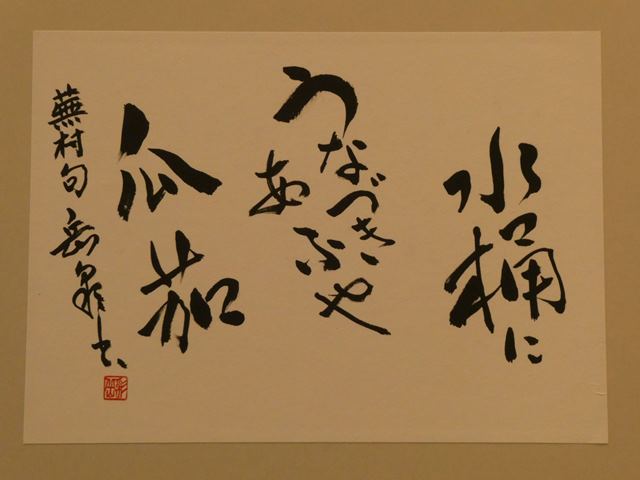 水桶に
うなづき
あふや
瓜茄
蕪村句 岳泉書